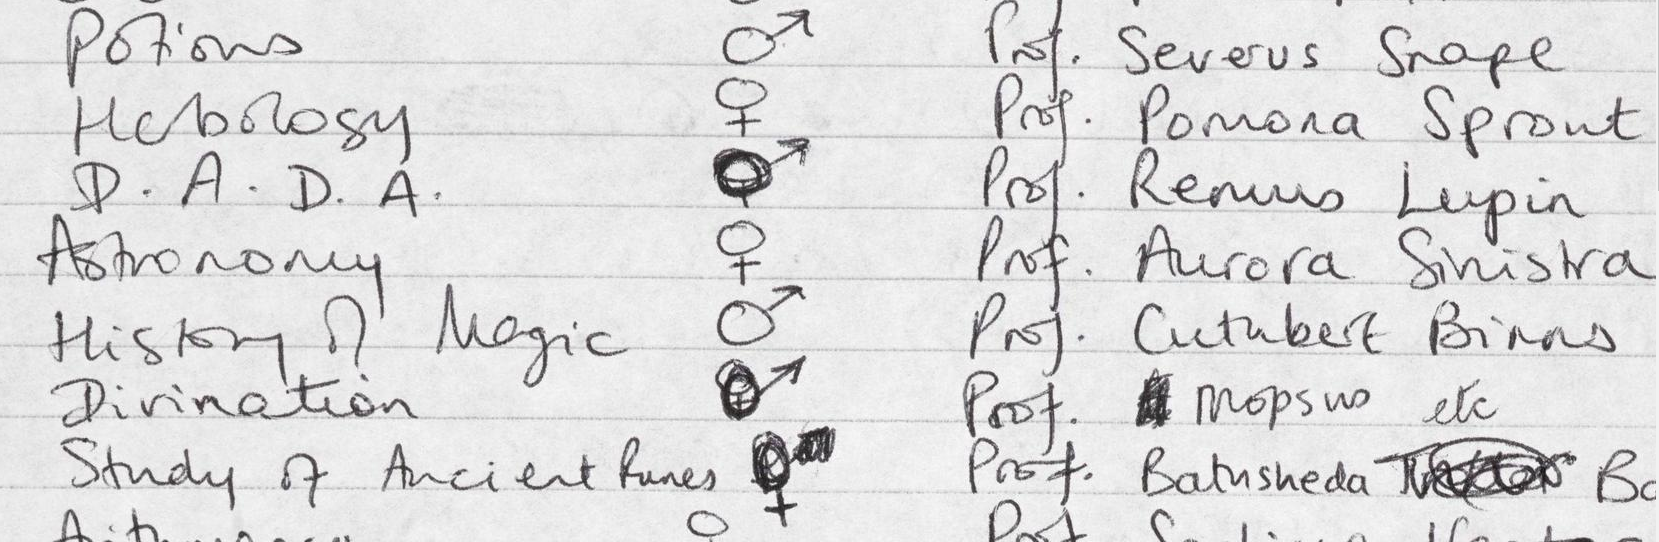 Potions ♂ Prof. Severus Snape
Hebology ♀ Prof. Pomona Sprout
D. A. D. A. ♂ Prof. Remus Lupin
Astronomy ♀ Prof. Aurora Sinistra
History of Magic ♂ Prof. Cuthbert Binns
Divination ♂ Prof. Mopsus etc
Study of Ancient Runes ♀ Prof. Bathsheda
Prof.